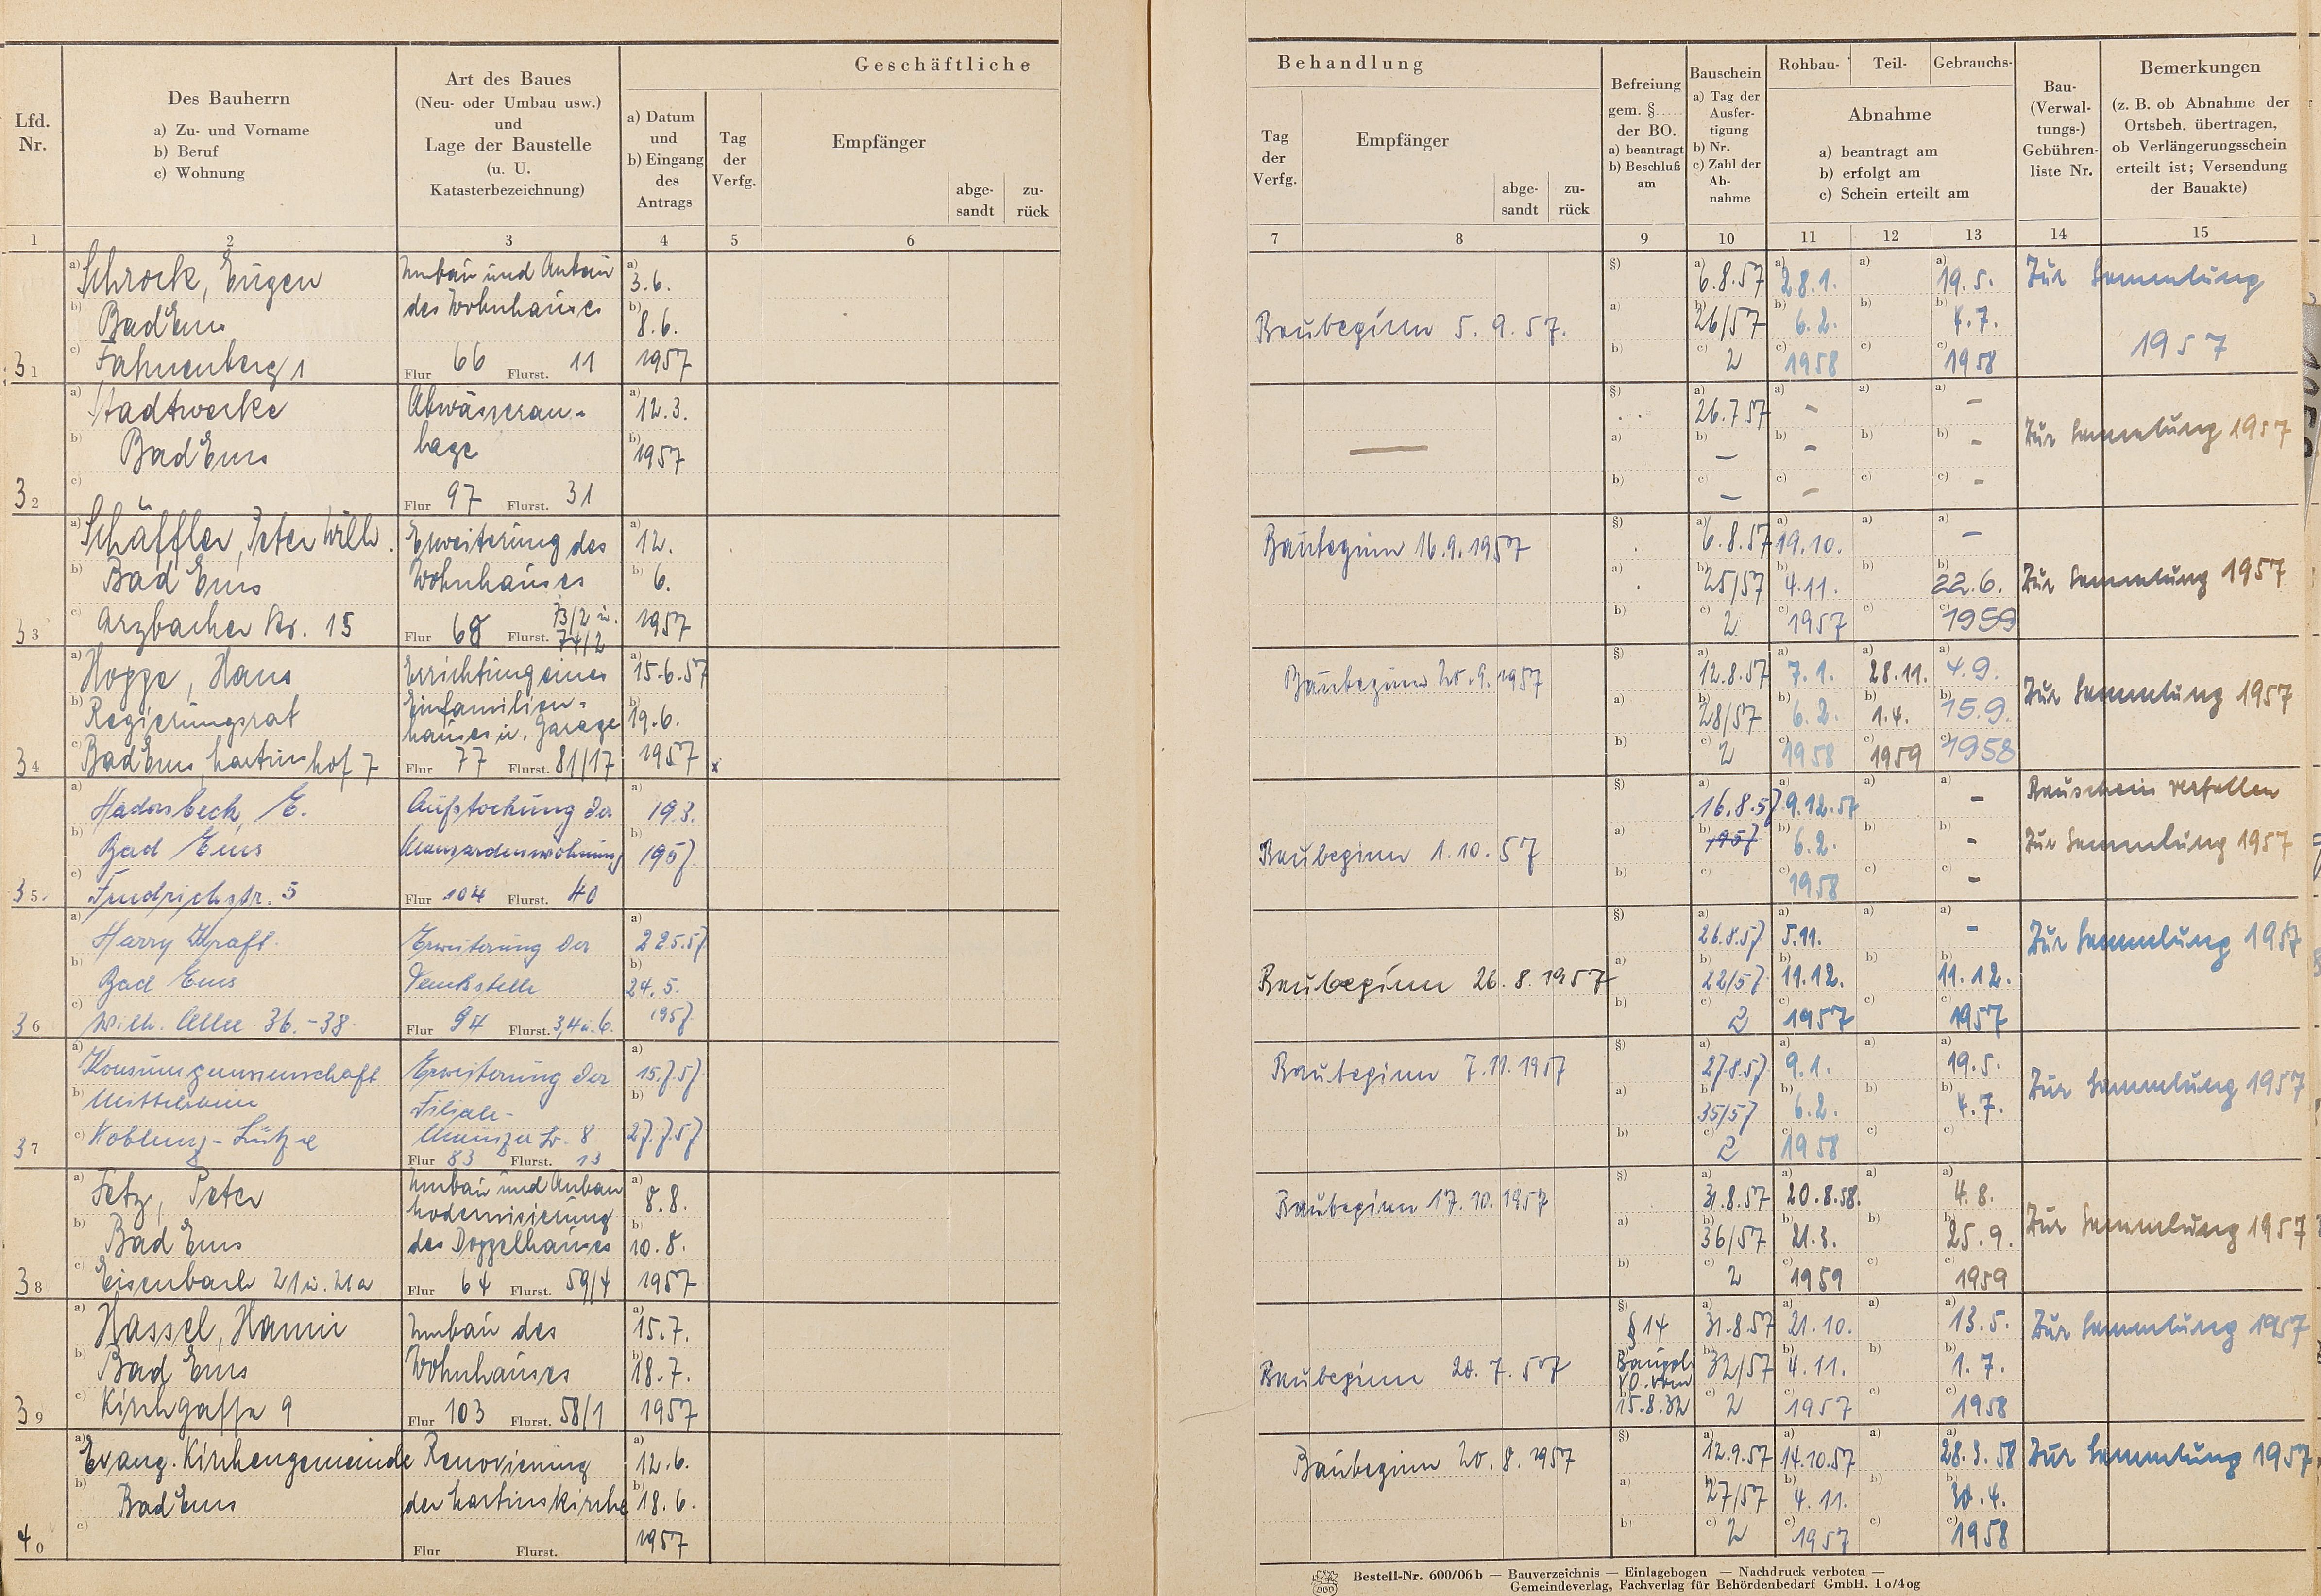 Geschäftliche
Behandlung
Lfd.
Nr.
Des Bauherrn
a) Zu- und Vorname
b) Beruf
c) Wohnung
Art des Baues
(Neu- oder Umbau usw.)
und
Lage der Baustelle
(u. U.
Katasterbezeichnung)
a) Datum
und
b) Eingang
des
Antrags
Tag
der
Verfg.
Empfänger
abge-
sandt
zu-
rück
Tag
der
Verfg.
Empfänger
abge-
sandt
zu-
rück
Befreiung
gem. §.....
der BO.
a) beantragt
b) Beschluß
am
Bauschein
a) Tag der
Ausfer-
tigung
b) Nr.
c) Zahl der
Ab-
nahme
Rohbau- Teil- Gebrauchs-
Abnahme
a) beantragt am
b) erfolgt am
c) Schein erteilt am
Bau-
(Verwal-
tungs-)
Gebühren-
liste Nr.
Bemerkungen
(z. B. ob Abnahme der
Ortsbeh. übertragen,
ob Verlängerungsschein
erteilt ist; Versendung
der Bauakte)
1 2 3 4 5 6 7 8 9 10 11 12 13 14 15
a) Schrock, Eugen Umbau und Anbau a) 3.6. §) a) 6.8.57 a) 28.1. a) a) 19.5. Zur Sammlung
b) Bad Ems des Wohnhauses b) 8.6. Baubeginn 5.9.57. a) b) 26/57 b) 6.2. b) b) 4.7.
31 c) Fahnenberg 1 Flur 66 Flurst. 11 1957 b) c) 2 c) 1958 c) c) 1958 1957
a) Stadtwerke Abwässeran- a) 12.3. §) a) 26.7.57 a) - a) a) -
b) Bad Ems lage b) 1957 — a) b) - b) - b) b) - Zur Sammlung 1957
32 c) Flur 97 Flurst. 31 b) c) - c) - c) c) -
a) Schäffler, Peter Wilh. Erweiterung des a) 12. Baubeginn 16.9.1957 §) a) 6.8.57 a) 19.10. a) a) -
b) Bad Ems Wohnhauses b) 6. a) b) 25/57 b) 4.11. b) b) 22.6. Zur Sammlung 1957
33 c) Arzbacher Str. 15 Flur 68 Flurst. 73/2 u. 74/2 1957 b) c) 2 c) 1957 c) c) 1959
a) Hoppe, Hans Errichtung eines a) 15.6.57 Baubeginn 20.9.1957 §) a) 12.8.57 a) 7.1. a) 28.11. a) 4.9.
b) Regierungsrat Einfamilien- b) 19.6. a) b) 28/57 b) 6.2. b) 1.4. b) 15.9. Zur Sammlung 1957
hauses u. Garage
34 c) Bad Ems, Martinshof 7 Flur 77 Flurst. 81/17 1957 x b) c) 2 c) 1958 1959 c) 1958
a) Hadorsbeck, E. Aufstockung der a) 19.3. §) a) 16.8.57 a) 9.12.57 a) a) - Bauschein verfallen
b) Bad Ems Mansardenwohnung b) 1957 Baubeginn 1.10.57 a) b) 1957 b) 6.2. b) b) - Zur Sammlung 1957
35. c) Friedrichstr. 5 Flur 104 Flurst. 40 b) c) c) 1958 c) c) -
a) Harry Kraft. Erweiterung der a) 22.5.57 §) a) 26.8.57 a) 5.11. a) a) - Zur Sammlung 1957
b) Bad Ems Tankstelle b) 24.5. Baubeginn 26.8.1957 a) b) 22/57 b) 11.12. b) b) 11.12.
36 c) Wilh. Allee 36.-38. Flur 94 Flurst. 3,4 u. 6. 1957 b) c) 2 c) 1957 c) 1957
a) Konsumgenossenschaft Erweiterung der a) 15.7.57. Baubeginn 7.11.1957 §) a) 27.8.57 a) 9.1. a) a) 19.5. Zur Sammlung 1957
b) Mittelrhein Filiale- b) a) b) 35/57 b) 6.2. b) b) 4.7.
37 c) Koblenz-Lützel Mainzer Str. 8 27.7.57 b) c) 2 c) 1958 c) c)
Flur 83 Flurst. 13
a) Fetz, Peter Umbau und Anbau a) 8.8. Baubeginn 17.10.1957 §) a) 31.8.57 a) 20.8.58. a) a) 4.8.
Modernisierung
b) Bad Ems des Doppelhauses b) 10.8. a) b) 36/57 b) 21.3. b) b) 25.9. Zur Sammlung 1957
38 c) Eisenbach 21 u. 21a Flur 64 Flurst. 59/4 1957 b) c) 2 c) 1959 c) 1959
a) Hassel, Hanni Umbau des a) 15.7. §) § 14 a) 31.8.57 a) 21.10. a) a) 13.5. Zur Sammlung 1957
b) Bad Ems Wohnhauses b) 18.7. Baubeginn 20.7.57 Baupol. VO. vom b) 32/57 b) 4.11. b) b) 1.7.
39 c) Kirchgasse 9 Flur 103 Flurst. 58/1 1957 15.8.32 c) 2 c) 1957 c) c) 1958
a) Evang. Kirchengemeinde Renovierung a) 12.6. Baubeginn 20.8.1957 §) a) 12.9.57 a) 14.10.57 a) a) 28.3.58 Zur Sammlung 1957
b) Bad Ems der Martinskirche b) 18.6. a) b) 27/57 b) 4.11. b) b) 30.4.
40 c) Flur Flurst. 1957 b) c) 2 c) 1957 c) c) 1958
Bestell-Nr. 600/06 b — Bauverzeichnis — Einlagebogen — Nachdruck verboten —
Gemeindeverlag, Fachverlag für Behördenbedarf GmbH. 10/409